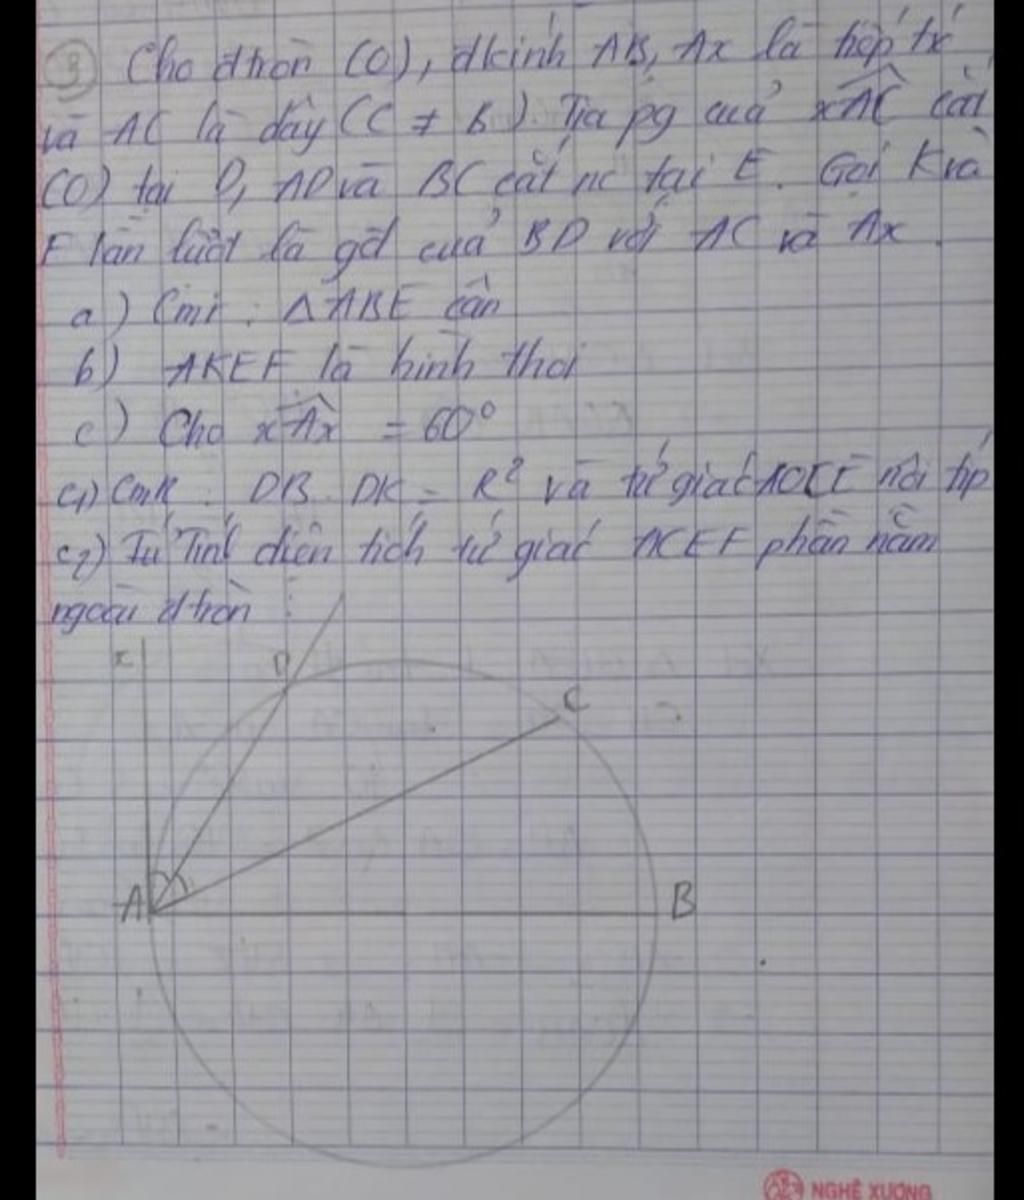 3) Cho đtròn (O), đkính AB, Ax là tiếp tx
và AC là dây (C ≠ B). Tia pg của xAC cắt
(O) tại D, AD và BC cắt nc tại E. Gọi K và
F lần lượt là gđ của BD với AC và Ax.
a) Cmr: ΔABE cân
b) AKEF là hình thoi
c) Cho xAx = 60°
c1) CmR: DB. DK = R² và tứ giác nội tip
c2) Tính diện tích tứ giác phần nằm
ngoài đtròn
x
D
C
A
B
NGHÊ XƯƠNG